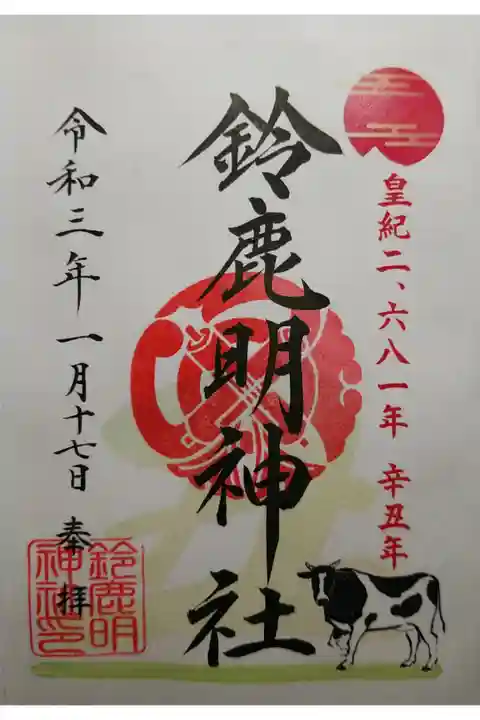 皇紀二、六八一年 辛丑年
鈴鹿明神社
令和三年一月十七日 奉拝
鈴鹿明
神社印